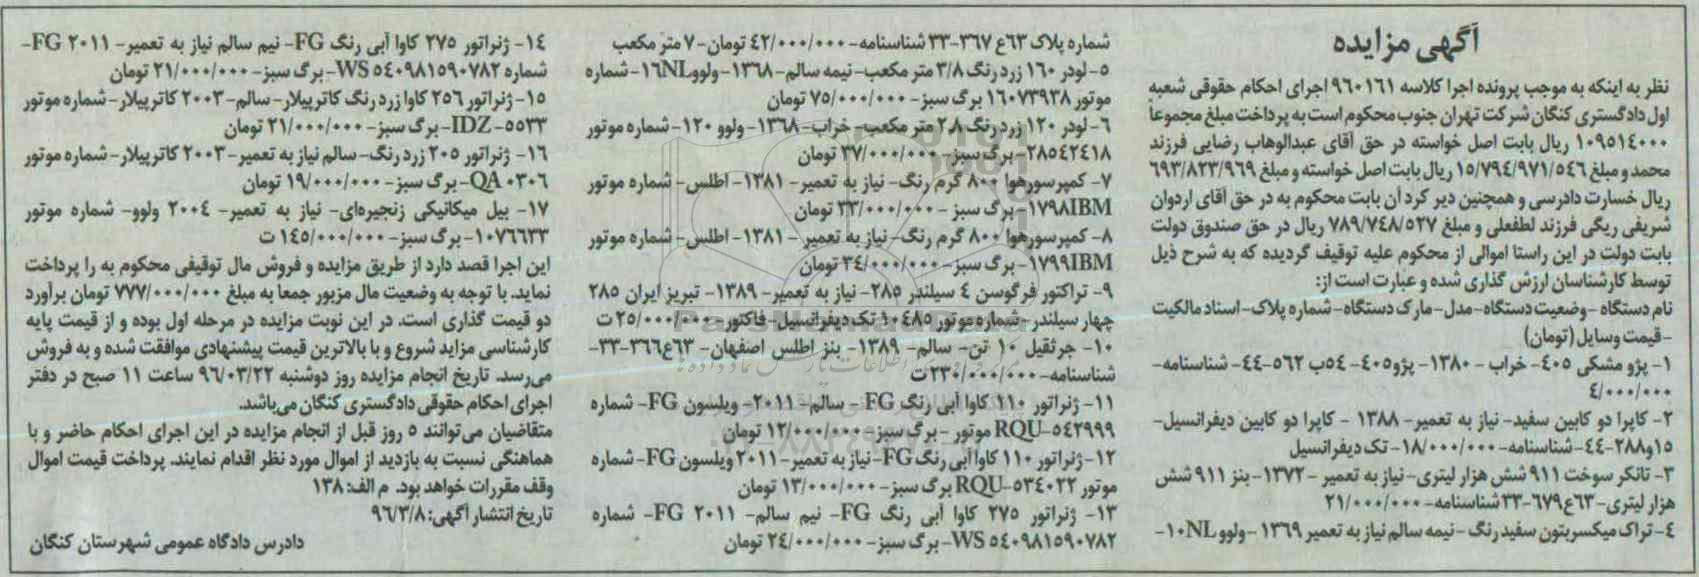 آگهی مزایده
نظر به اینکه به موجب پرونده اجرا کلاسه ۹۶۰۱۶۱ اجرای احکام حقوقی شعبه
اول دادگستری کنگان شرکت تهران جنوب محکوم است به پرداخت مبلغ مجموعاً
۱۰۹۵۱۴۰۰۰ ریال بابت اصل خواسته در حق آقای عبدالوهاب رضایی فرزند
محمد و مبلغ ۱۵/۷۹۴/۹۷۱/۵۴۶ ریال بابت اصل خواسته و مبلغ ۶۹۳/۸۲۳/۹۶۹
ریال خسارت دادرسی و همچنین دیر کرد آن بابت محکوم به در حق آقای اردوان
شریفی ریگی فرزند لطفعلی و مبلغ ۷۸۹/۷۴۸/۵۲۷ ریال در حق صندوق دولت
بابت دولت در این راستا اموالی از محکوم علیه توقیف گردیده که به شرح ذیل
توسط کارشناسان ارزش گذاری شده و عبارت است از:
نام دستگاه -وضعیت دستگاه-مدل-مارک دستگاه-شماره پلاک-اسناد مالکیت
-قیمت وسایل (تومان)
۱- پژو مشکی ۴۰۵- خراب - ۱۳۸۰- پژو۴۰۵- ۵۴ب ۵۶۲-۴۴- شناسنامه-
۴/۰۰۰/۰۰۰
۲- کاپرا دو کابین سفید- نیاز به تعمیر- ۱۳۸۸ - کاپرا دو کابین دیفرانسیل-
۱۵و۲۸۸-۴۴-شناسنامه-۱۸/۰۰۰/۰۰۰- تک دیفرانسیل
۳- تانکر سوخت ۹۱۱ شش هزار لیتری- نیاز به تعمیر - ۱۳۷۲- بنز ۹۱۱ شش
هزار لیتری- ۶۳ع۶۷۹-۳۳شناسنامه- ۲۱/۰۰۰/۰۰۰
۴-تراک میکسربتون سفید رنگ -نیمه سالم نیاز به تعمیر ۱۳۶۹ -ولوو ۱۰NL-
شماره پلاک ۶۳ع ۳۶۷-۳۳ شناسنامه- ۴۲/۰۰۰/۰۰۰ تومان- ۷ متر مکعب
۵-لودر ۱۶۰ زرد رنگ ۳/۸ متر مکعب-نیمه سالم-۱۳۶۸- ولوو۱۶NL-شماره
موتور ۱۶۰۷۳۹۳۸ برگ سبز- ۷۵/۰۰۰/۰۰۰ تومان
۶-لودر ۱۲۰ زرد رنگ ۲.۸ متر مکعب- خراب-۱۳۶۸- ولوو ۱۲۰-شماره موتور
۲۸۵۴۲۴۱۸- برگ سبز- ۳۷/۰۰۰/۰۰۰ تومان
۷- کمپرسورهوا ۸۰۰ گرم رنگ- نیاز به تعمیر- ۱۳۸۱- اطلس- شماره موتور
۱۷۹۸IBM- برگ سبز - ۳۳/۰۰۰/۰۰۰ تومان
۸- کمپرسورهوا ۸۰۰ گرم رنگ- نیاز به تعمیر - ۱۳۸۱- اطلس- شماره موتور
۱۷۹۹IBM- برگ سبز- ۳۴/۰۰۰/۰۰۰ تومان
۹- تراکتور فرگوسن ۴ سیلندر ۲۸۵- نیاز به تعمیر- ۱۳۸۹- تبریز ایران ۲۸۵
چهار سیلندر -شماره موتور ۱۰۴۸۵ تک دیفرانسیل- فاکتور - ۲۵/۰۰۰/۰۰۰ ت
۱۰- جرثقیل ۱۰ تن- سالم- ۱۳۸۹- بنز اطلس اصفهان- ۶۳ع۳۶۶-۳۳-
شناسنامه-۲۳۰/۰۰۰/۰۰۰ ت
۱۱- ژنراتور ۱۱۰ کاوا آبی رنگ FG - سالم- ۲۰۱۱- ویلسون FG- شماره
۵۴۲۹۹۹-RQU موتور - برگ سبز- ۱۲/۰۰۰/۰۰۰ تومان
۱۲- ژنراتور ۱۱۰ کاوا آبی رنگ FG- نیاز به تعمیر- ۲۰۱۱ ویلسون FG- شماره
موتور ۵۳۴۰۲۲-RQU برگ سبز- ۱۳/۰۰۰/۰۰۰ تومان
۱۳- ژنراتور ۲۷۵ کاوا آبی رنگ FG- نیم سالم- ۲۰۱۱ FG- شماره
WS ۵۴۰۹۸۱۵۹۰۷۸۲- برگ سبز- ۲۴/۰۰۰/۰۰۰ تومان
۱۴- ژنراتور ۲۷۵ کاوا آبی رنگ FG- نیم سالم نیاز به تعمیر- ۲۰۱۱ FG-
شماره WS ۵۴۰۹۸۱۵۹۰۷۸۲-برگ سبز- ۲۱/۰۰۰/۰۰۰ تومان
۱۵- ژنراتور ۲۵۶ کاوا زرد رنگ کاترپیلار- سالم- ۲۰۰۳ کاترپیلار- شماره موتور
۵۵۳۳-IDZ- برگ سبز- ۲۱/۰۰۰/۰۰۰ تومان
۱۶- ژنراتور ۲۰۵ زرد رنگ- سالم نیاز به تعمیر- ۲۰۰۳ کاترپیلار- شماره موتور
QA ۰۳۰۶- برگ سبز- ۱۹/۰۰۰/۰۰۰ تومان
۱۷- بیل میکانیکی زنجیره‌ای- نیاز به تعمیر- ۲۰۰۴ ولوو- شماره موتور
۱۰۷۶۶۳۳- برگ سبز- ۱۴۵/۰۰۰/۰۰۰ ت
این اجرا قصد دارد از طریق مزایده و فروش مال توقیفی محکوم به را پرداخت
نماید. با توجه به وضعیت مال مزبور جمعا به مبلغ ۷۷۷/۰۰۰/۰۰۰ تومان برآورد
دو قیمت گذاری است. در این نوبت مزایده در مرحله اول بوده و از قیمت پایه
کارشناسی مزاید شروع و با بالاترین قیمت پیشنهادی موافقت شده و به فروش
می‌رسد. تاریخ انجام مزایده روز دوشنبه ۹۶/۰۳/۲۲ ساعت ۱۱ صبح در دفتر
اجرای احکام حقوقی دادگستری کنگان می‌باشد.
متقاضیان می‌توانند ۵ روز قبل از انجام مزایده در این اجرای احکام حاضر و با
هماهنگی نسبت به بازدید از اموال مورد نظر اقدام نمایند. پرداخت قیمت اموال
وقف مقررات خواهد بود. م الف: ۱۳۸
تاریخ انتشار آگهی: ۹۶/۳/۸
دادرس دادگاه عمومی شهرستان کنگان